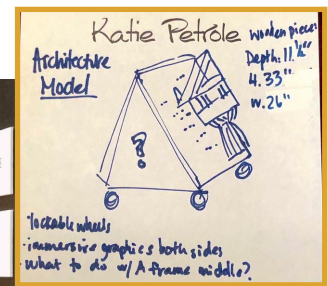 Katie Petrole
Architecture
Model
wooden piece:
Depth: 11 ½"
4. 33"
w. 26"
?
lockable wheels
·immersive graphics both sides
·what to do w/ A frame middle?